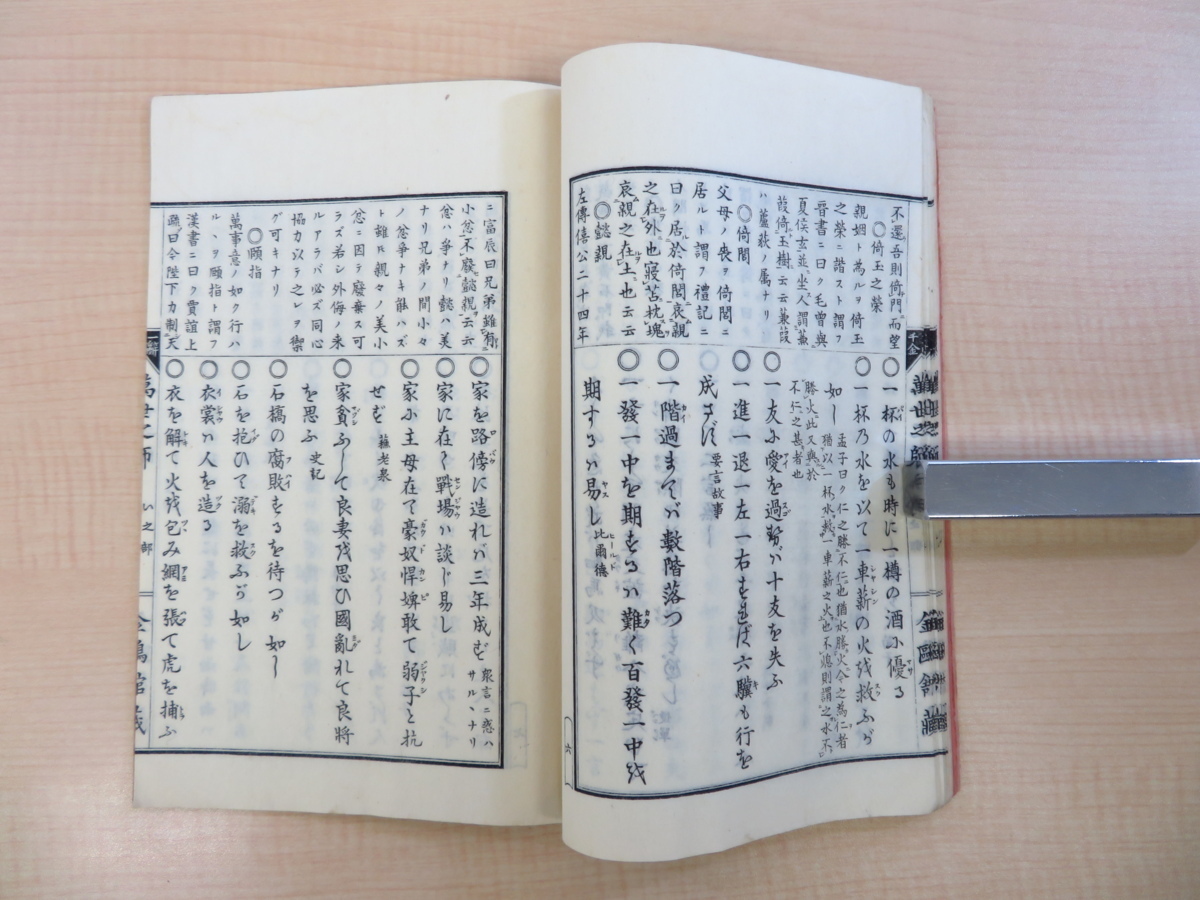 不還吾則倚門而望
◯倚玉之榮
親姻ト為ルヲ倚玉
之榮ニ諧ストト謂フ
晉書ニ曰ク毛曾與
夏侯玄並坐人謂蒹
葭倚玉樹云云蒹葭
ハ蘆荻ノ属ナリ
◯倚閭
父母ノ喪ヲ倚閭ニ
居ルト謂フ禮記ニ
曰ク居於倚閭哀親
之在外也寢苫枕塊
哀親之在土也云云
◯懿親
左傳僖公二十四年
◎一杯の水も時に一樽の酒小優る
◎一杯乃水を以て一車薪の火
救ふが
如し 孟子曰ク仁之勝不仁也猶水勝火今之為仁者
猶以一杯水救一車薪之火也不熄則謂之水不
勝火此又與於
不仁之甚者也
◎一友小愛を過
十友を失ふ
◎一進一退一左一右
六驥も行を
成さず 要言故事
◎一階過
數階落つ
◎一發一中を期するハ難く百發一中
期するハ易し 比爾德
六
ニ富辰曰兄弟雖有
小忿不廢懿親云云
忿ハ爭ナリ懿ハ美
ナリ兄弟ノ間小々
ノ忿爭ナキ能ハズ
ト雖ト親々ノ美小
忿ニ因テ廢棄ス可
ラズ若シ外侮ノ来
ルアラバ必ズ同心
協力以テ之レヲ禦
グ可キナリ
◯頤指
萬事意ノ如ク行ハ
ルヽヲ頤指ト謂フ
漢書ニ曰ク賈誼上
疏曰今陛下力制天
◎家を路傍に造れバ三年成
衆言ニ惑ハ
サルヽナリ
◎家に在て戰場ハ談じ易し
◎家小主母在て豪奴悍婢敢て弱子と抗
せず 蘇老泉
◎家貧ふして良妻
思ひ國亂れて良將
を思ふ 史記
◎石橋の腐敗するを待つが如し
◎石を抱ひて溺を救ふが如し
◎衣裳ハ人を造る
◎衣を解て火
包み網を張て虎を捕ふ
萬世之師 い之部